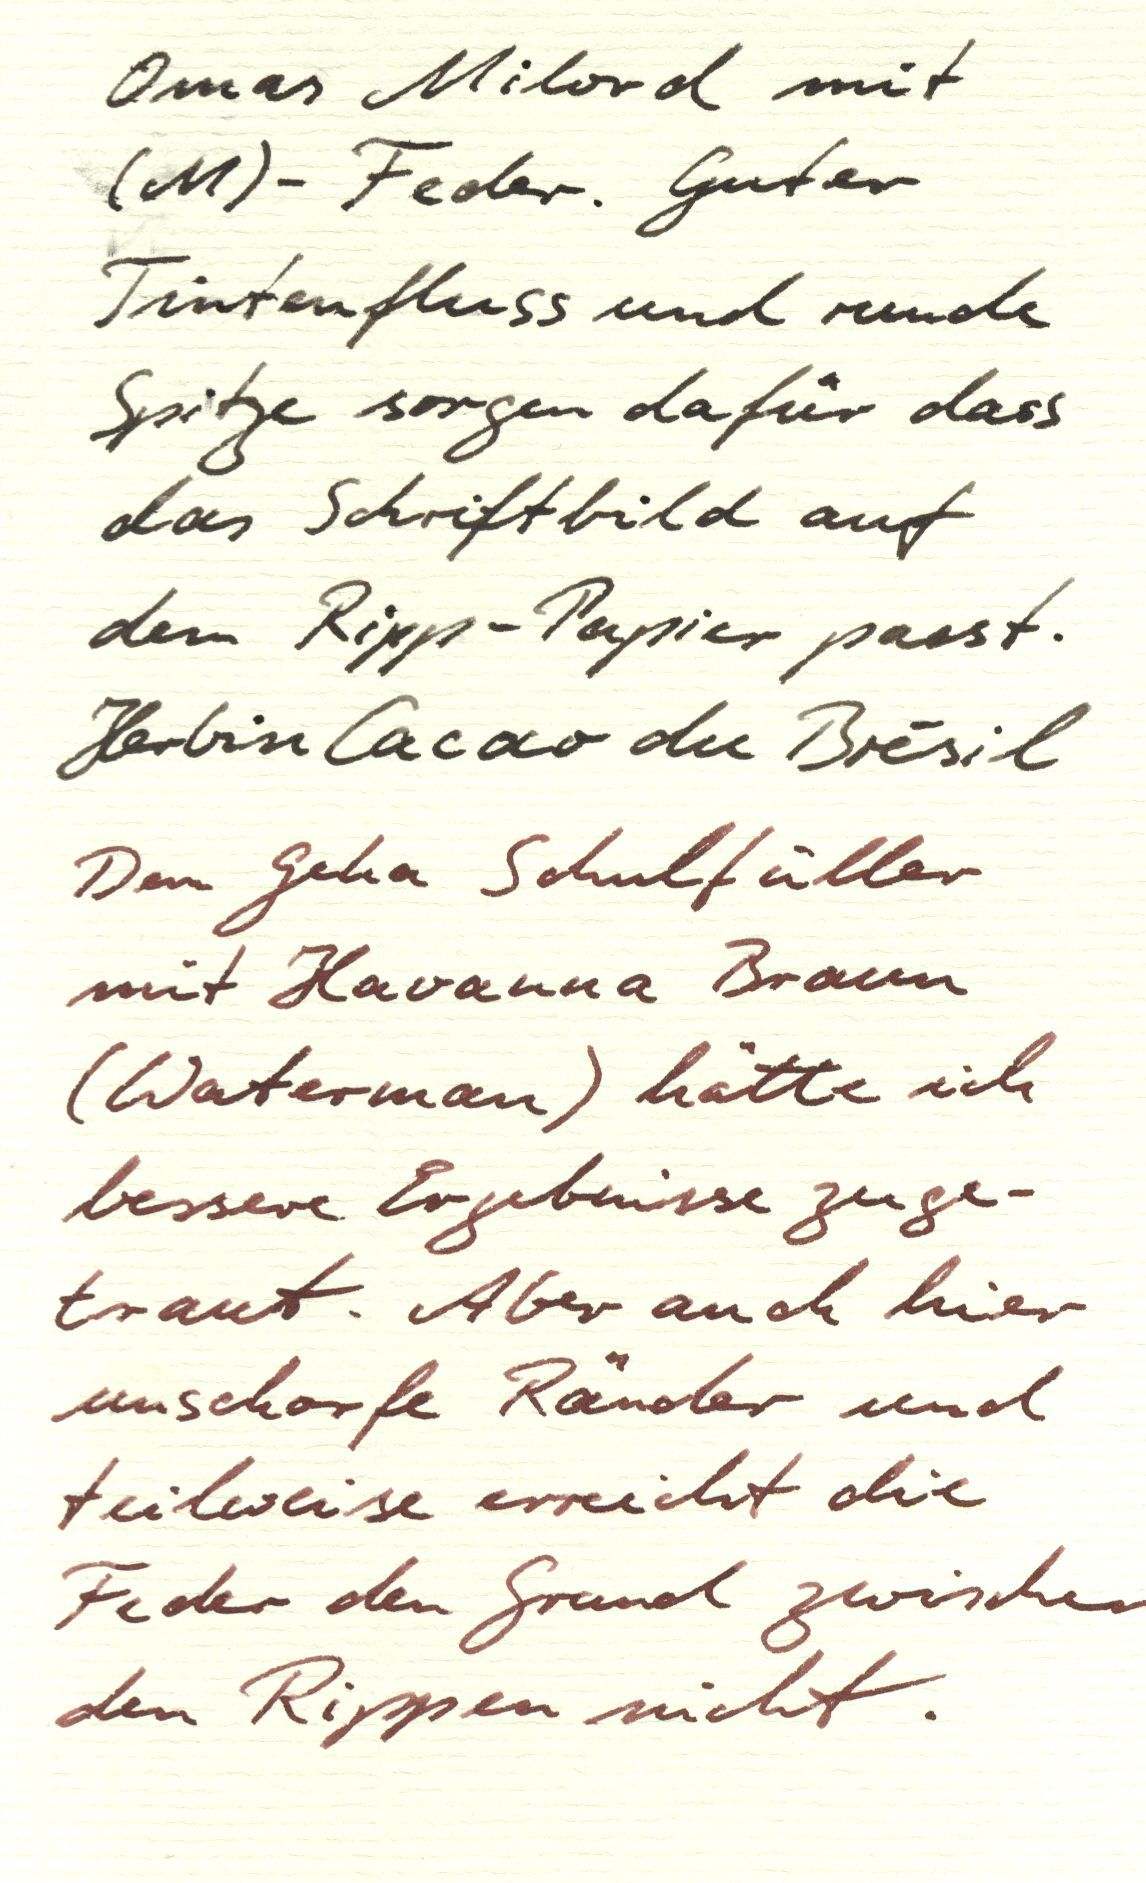 Omas Milord mit
(M)- Feder. Guter
Tintenfluss und runde
Spitze sorgen dafür dass
das Schriftbild auf
dem Ripp-Papier passt.
Herbin Cacao du Brésil
Dem Geha Schulfüller
mit Havanna Braun
(Waterman) hätte ich
bessere Ergebnisse zuge-
traut. Aber auch hier
unscharfe Ränder und
teilweise erreicht die
Feder den Grund zwischen
den Rippen nicht.